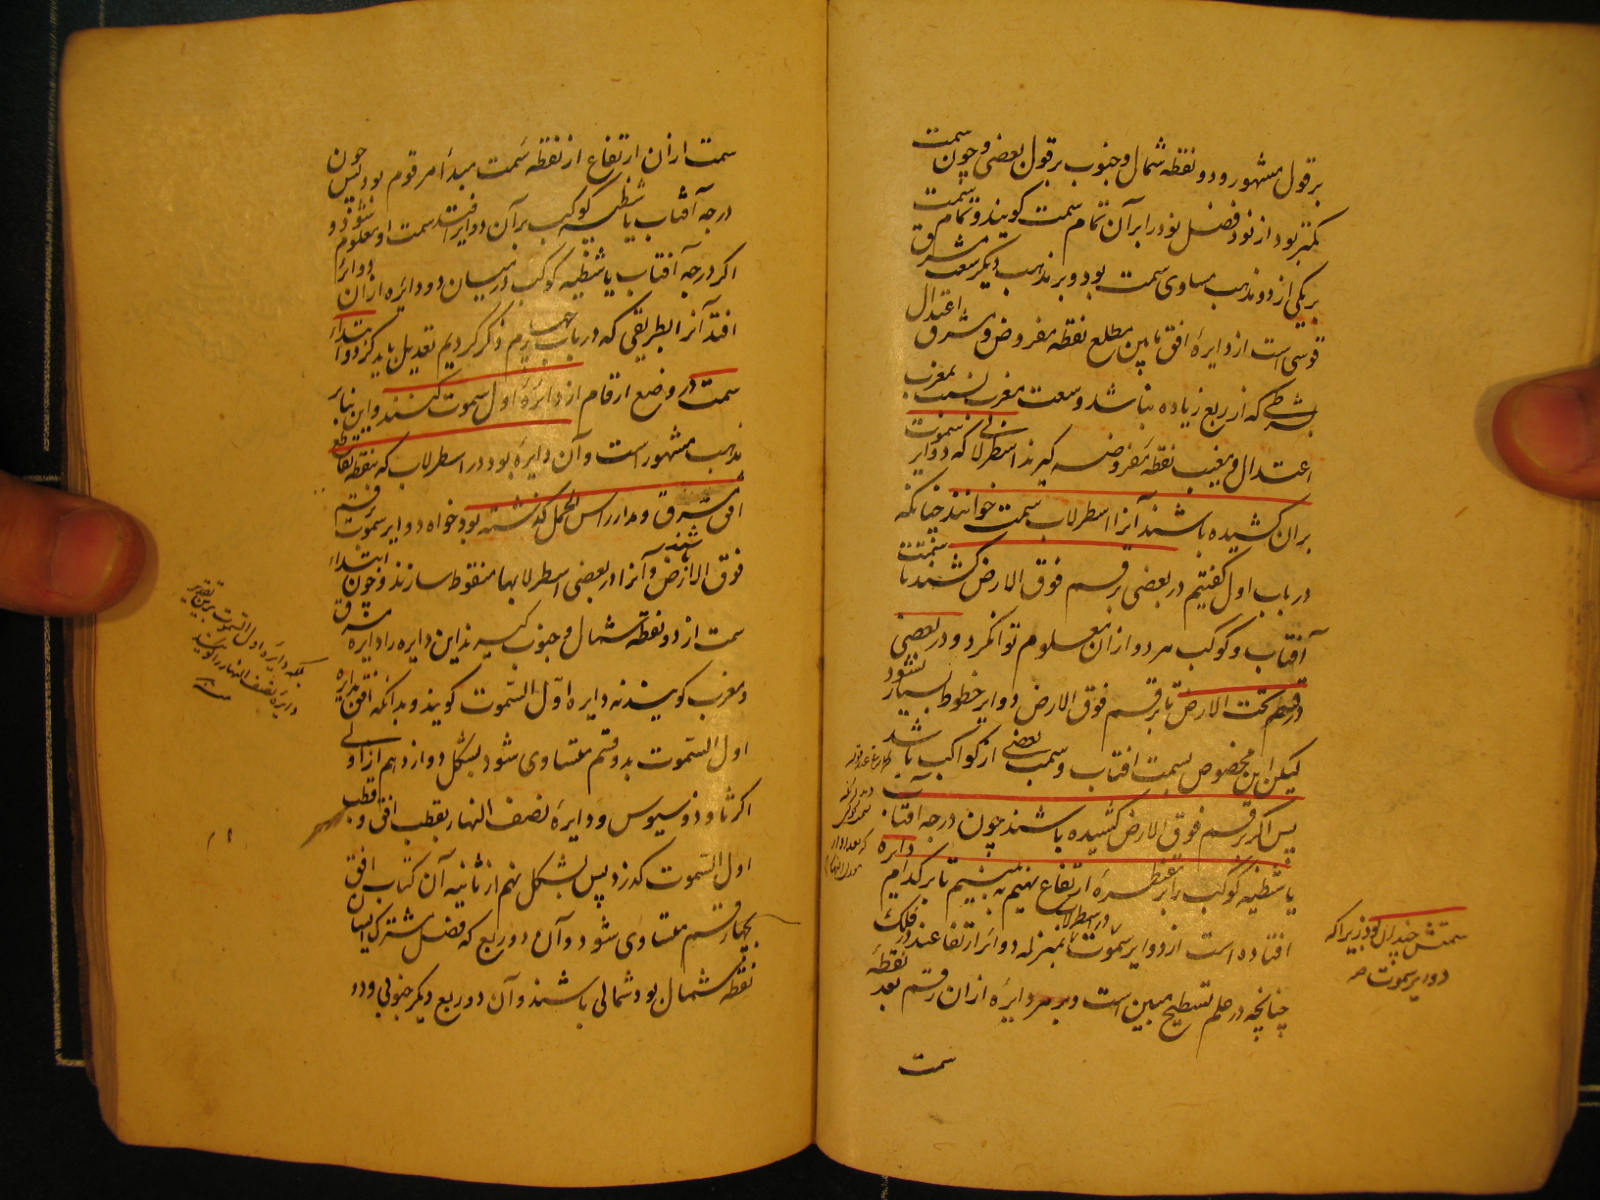 بر قول مشهور و دو نقطه شمال و جنوب بر قول بعضی و چون سمت
کمتر بود از نود فضل نود را بر آن تمام سمت کویند و تمام سمت
بر یکی از دو مذهب مساوی سمت بود و بر مذهب دیکر سعت مشرق
قوسی است از دایرهٔ افق مابین مطلع نقطه مفروض و مشرق اعتدال
بشرطی که از ربع زیاده نباشد و سعت مغرب نسبت بمغرب
اعتدال و مغیب نقطه مفروضه کیرند اسطرلابی که دوایر سموت
بران کشیده باشند آنرا اسطرلاب سمت خوانند چنانکه
در باب اول کفتیم در بعضی بر قسم فوق الارض کشند تا سمت
آفتاب و کوکب هر دو ازان معلوم توان کرد و در بعضی
در قسم تحت الارض تا بر قسم فوق الارض دوایر خطوط بسیار نشود
لیکن این مخصوص بسمت افتاب و سمت بعضی از کواکب باشد
پس اکر بر قسم فوق الارض کشیده باشند چون درجه افتاب
یا شظیه کوکب را بر مقنطرهٔ ارتفاع نهیم به بینیم تا بر کدام دایره
افتاده است از دوایر سموت در اسطرلاب بمنزله دوایر ارتفاعند در فلک
چنانچه در علم تسطیح مبین است و بر هر دایرهٔ ازان رقم بعد نقطهٔ
سمت
سمتش چندان بود زیرا که
دوایر سموت
سمت ازان ارتفاع از نقطه سمت مبدأ مرقوم بود پس چون
درجه آفتاب یا شظیه کوکب بر آن دوایر افتد سمت او معلوم شود و
اکر درجه آفتاب یا شظیه کوکب در میان دو دایره ازان دوایر
افتد آنرا بطریقی که در باب چهارم ذکر کردیم تعدیل باید کرد و ابتداء
سمت در وضع ارقام از دایرهٔ اول سموت کنند و این بنابر
مذهب مشهور است و آن دایرهٔ بود در اسطرلاب که بنقطه تقاطع
افق مشرق و مدار راس الحمل کذشته بود خواه دوایر سموت بر قسم
فوق الارض باشند و آنرا در بعضی اسطرلابها منقوط سازند و چون ابتداء
سمت از دو نقطه شمال و جنوب کیرند این دایره را دایره مشرق
و مغرب کویند نه دایره اول السموت کویند و بدانکه افق بدایره
اول السموت بدو قسم متساوی شود بشکل دوازدهم از اولی
اکر ثاوذوسیوس و دایرهٔ نصف النهار بقطب افق و قطب
اول السموت کذرد پس بشکل نهم از ثانیه آن کتاب افق
بچهار قسم متساوی شود و آن دو ربع که فصل مشترک میان
نقطه شمال بود شمالی باشند و آن دو ربع دیکر جنوبی و در
بلکه دایره اول السموت برین تقدیر
دایرهٔ نصف النهار را کویند